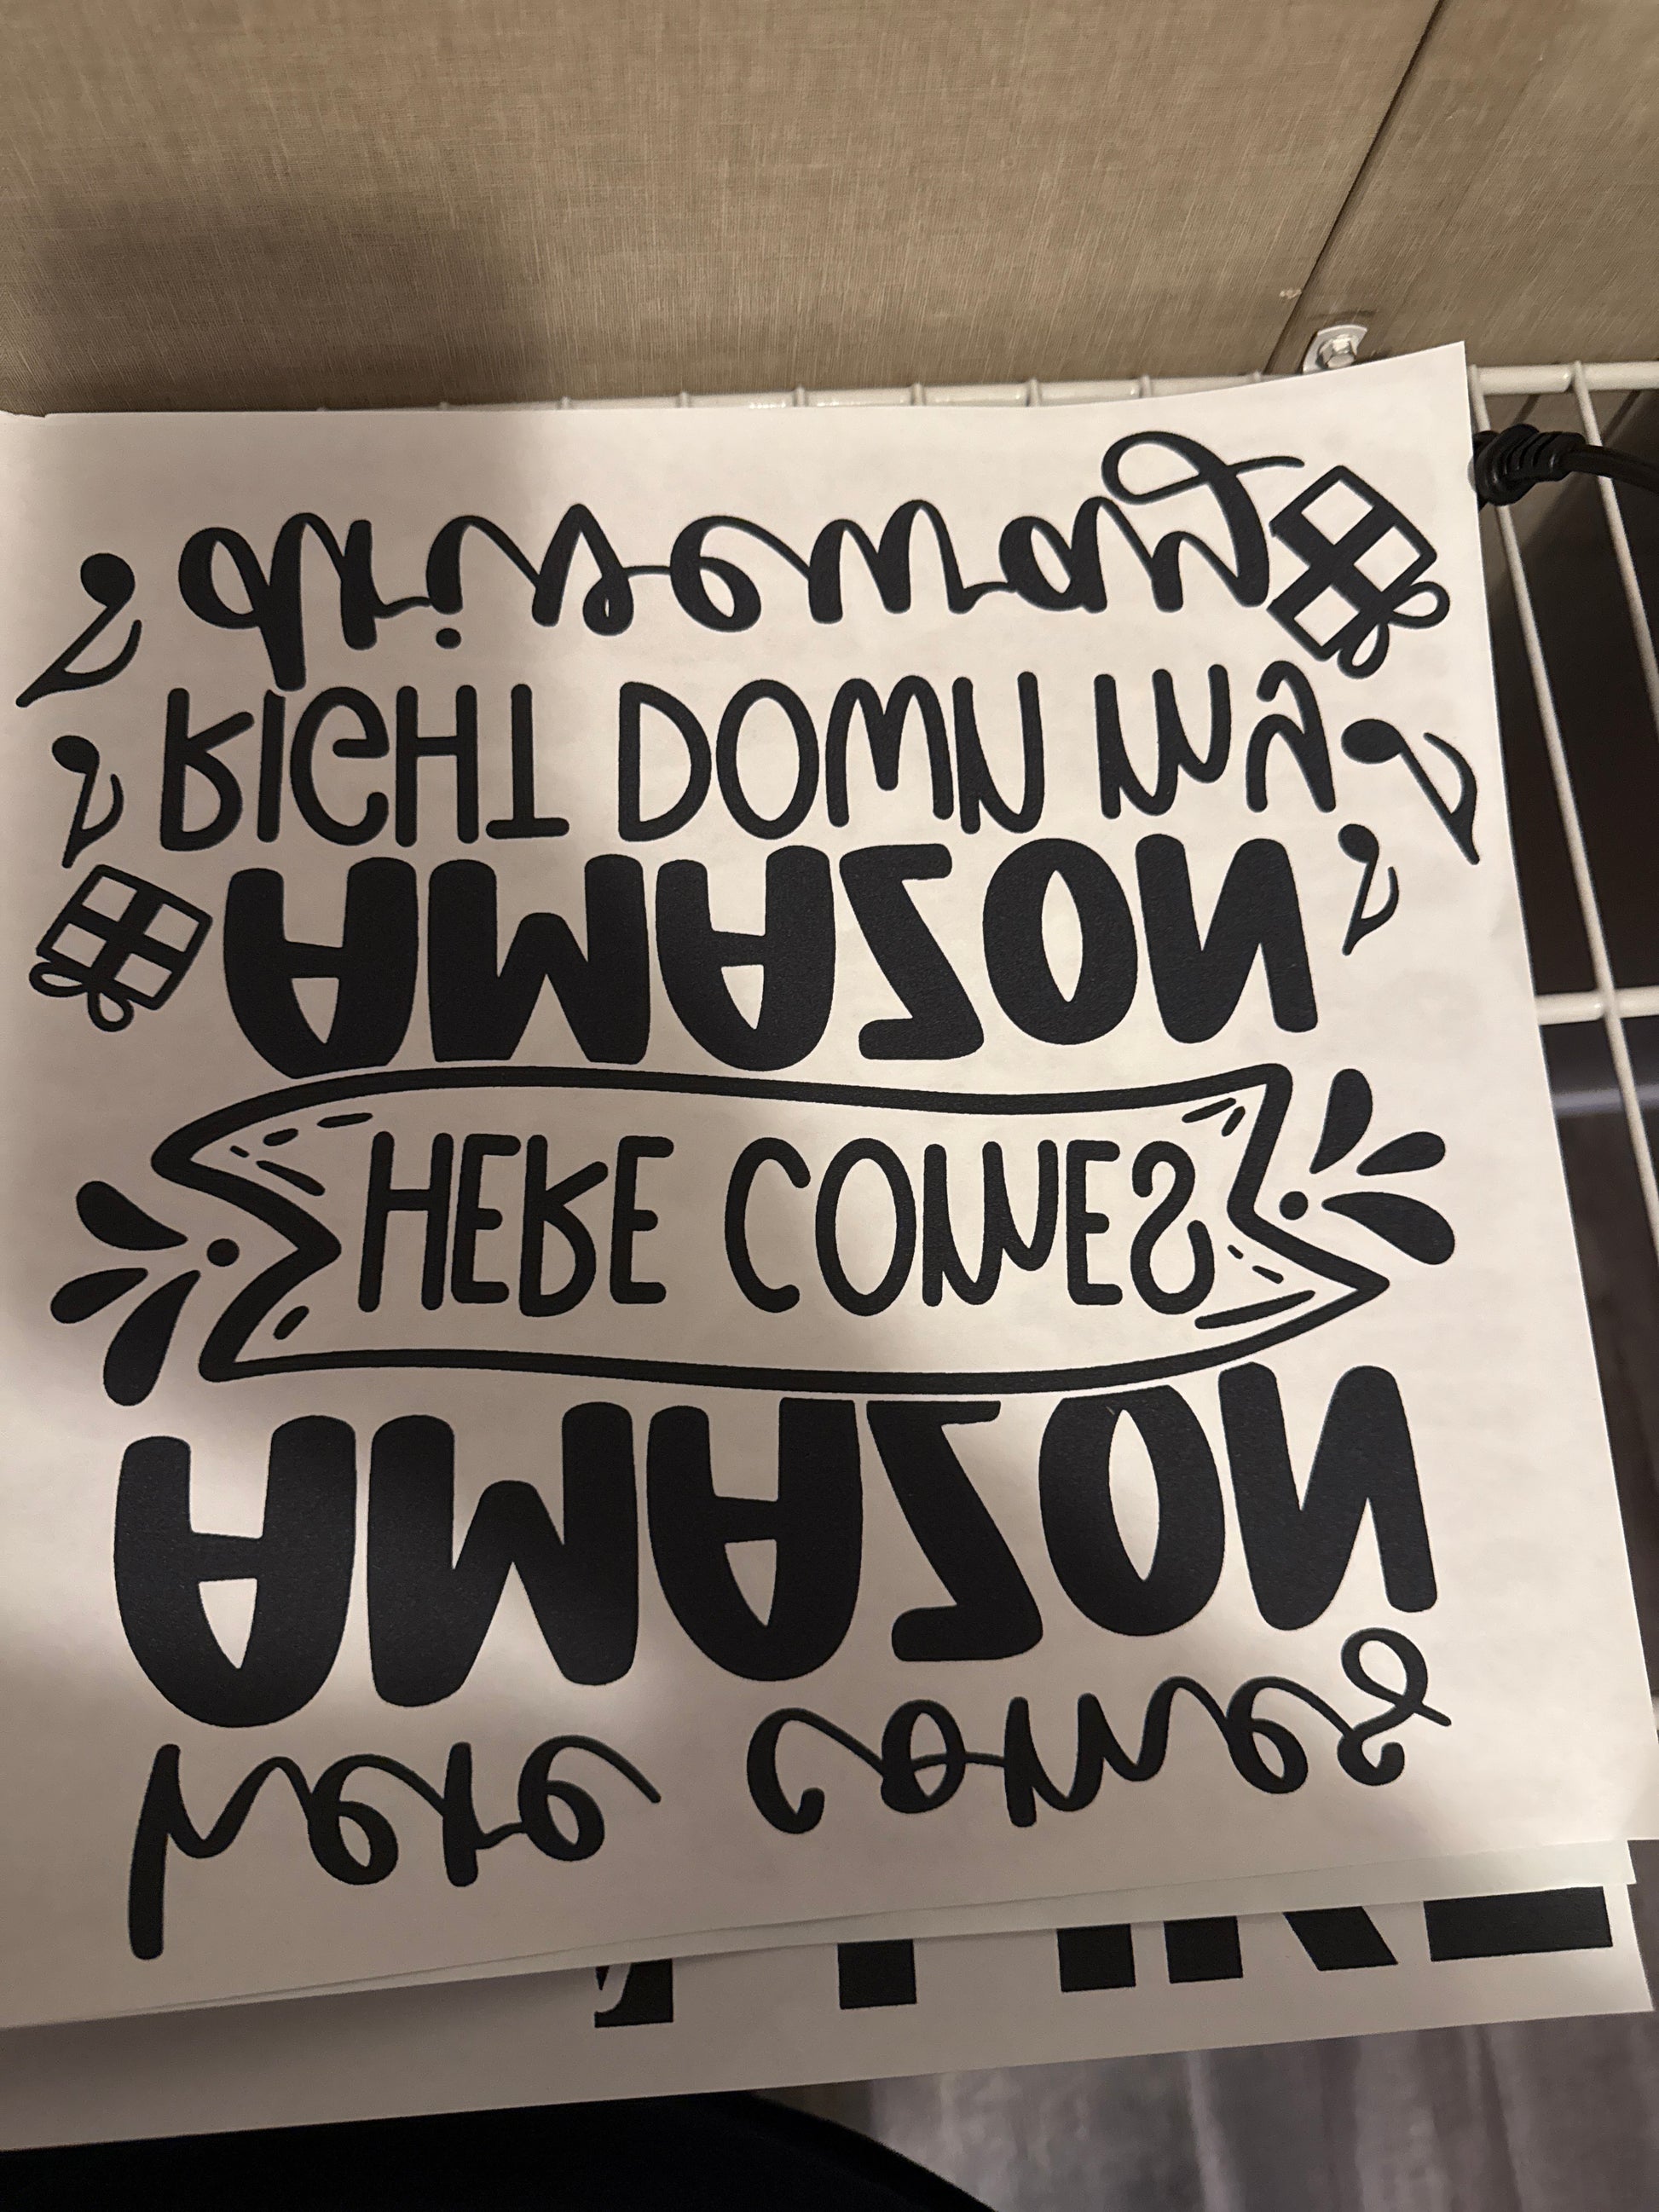 Here comes
AMAZON
HERE COMES
AMAZON
RIGHT DOWN MY
driveway